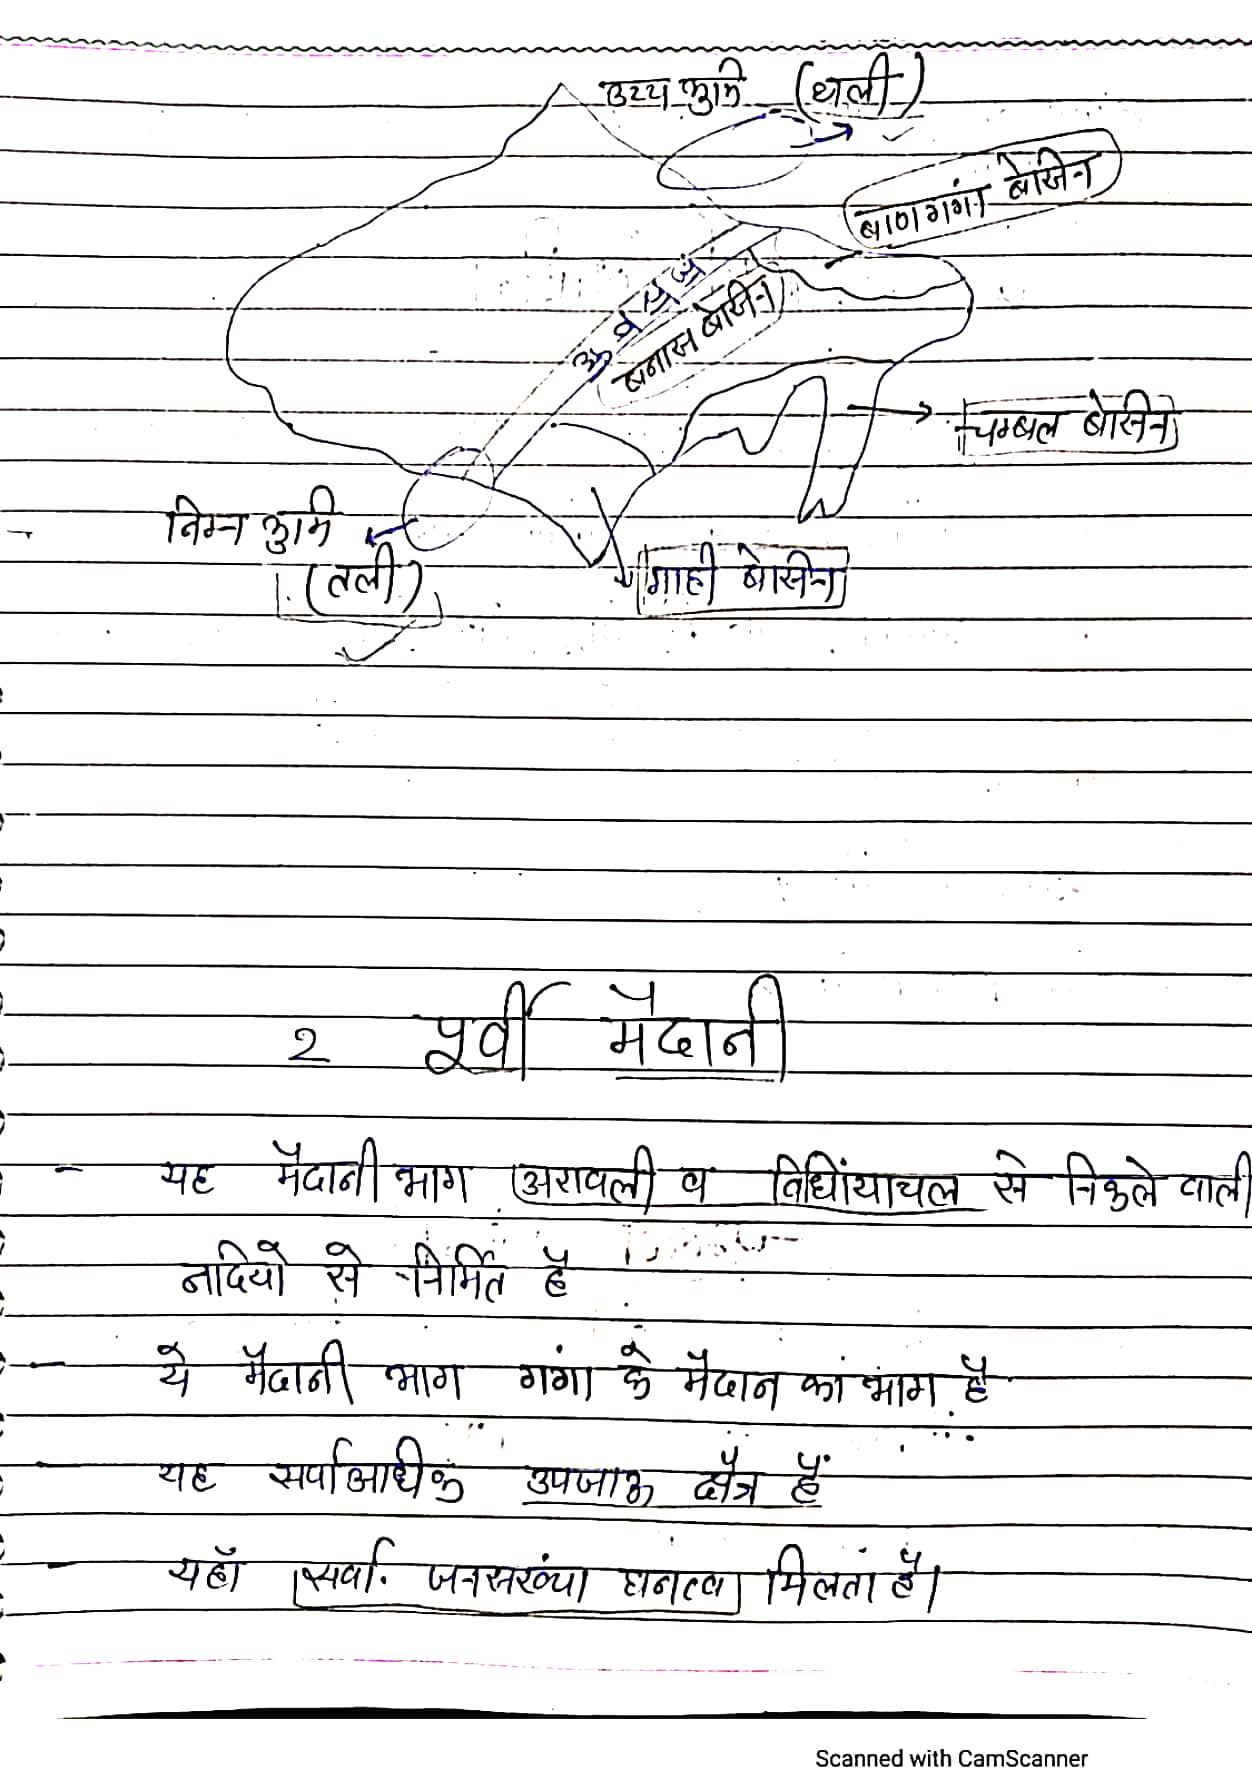 उच्च भुमि (थली)
बाणगंगा बेसिन
बनास बेसिन
चम्बल बेसिन
निम्न भुमि
(तली)
माही बेसिन
2 पूर्वी मैदानी
- यह मैदानी भाग अरावली व विधिंयाचल से निकले वाली
नदियो से निर्मित है
- ये मैदानी भाग गंगा के मैदान का भाग है
- यह सर्वाआधीक उपजाऊ क्षैत्र हैं
- यहाँ सर्वा. जनसख्ंया घनत्व मिलता है।
Scanned with CamScanner